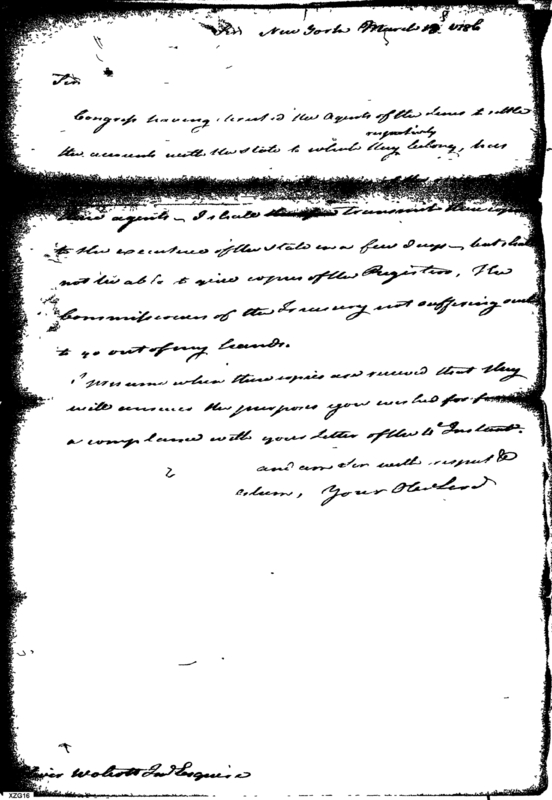 New York March 1786
Sir
Congress having directed the Agents of the Lines to settle
respectively
the accounts with the State to which they belong, has
their agents — I shall transmit these
to the executive of the State in a few days — but shall
not be able to give copies of the Registers, the
Commissioners of the Treasury not suffering
to go out of my hands.
I presume when these copies are received that they
will answer the purposes you wished for from
a compliance with your letter of the 4th Instant.
and am Sir with respect &
esteem, Your Obed Serv
Oliver Wolcott Junr Esquire
XZG16